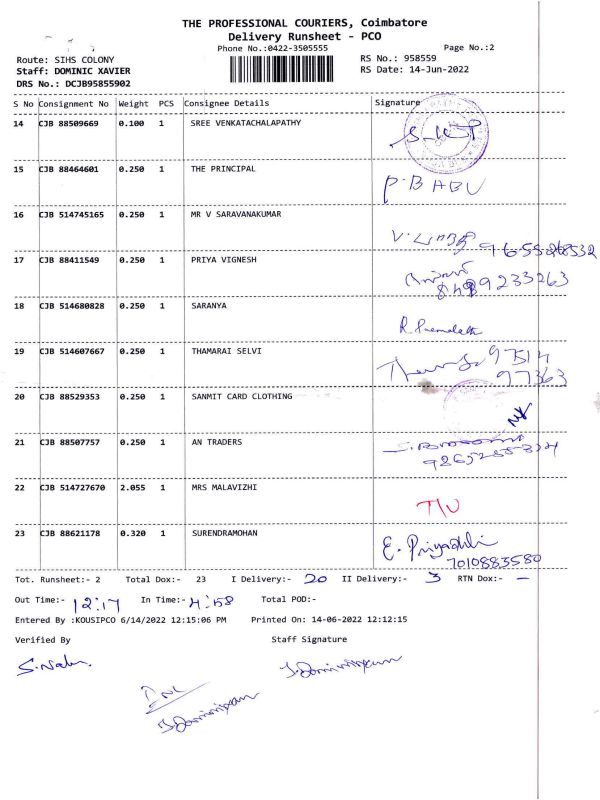 THE PROFESSIONAL COURIERS, Coimbatore
Delivery Runsheet - PCO
Phone No.:0422-3505555
Page No.:2
Route: SIHS COLONY
RS No.: 958559
Staff: DOMINIC XAVIER
RS Date: 14-Jun-2022
DRS No.: DCJB95855902
S No Consignment No Weight PCS Consignee Details Signature
14 CJB 88509669 0.100 1 SREE VENKATACHALAPATHY
15 CJB 88464601 0.250 1 THE PRINCIPAL
P. BABU
16 CJB 514745165 0.250 1 MR V SARAVANAKUMAR
17 CJB 88411549 0.250 1 PRIYA VIGNESH
18 CJB 514680828 0.250 1 SARANYA
19 CJB 514607667 0.250 1 THAMARAI SELVI
97514
97363
20 CJB 88529353 0.250 1 SANMIT CARD CLOTHING
21 CJB 88507757 0.250 1 AN TRADERS
22 CJB 514727670 2.055 1 MRS MALAVIZHI
23 CJB 88621178 0.320 1 SURENDRAMOHAN
7010883580
Tot. Runsheet:- 2 Total Dox:- 23 I Delivery:- 20 II Delivery:- 3 RTN Dox:- —
Out Time:- 12:17 In Time:- 4:58 Total POD:-
Entered By :KOUSIPCO 6/14/2022 12:15:06 PM Printed On: 14-06-2022 12:12:15
Verified By Staff Signature